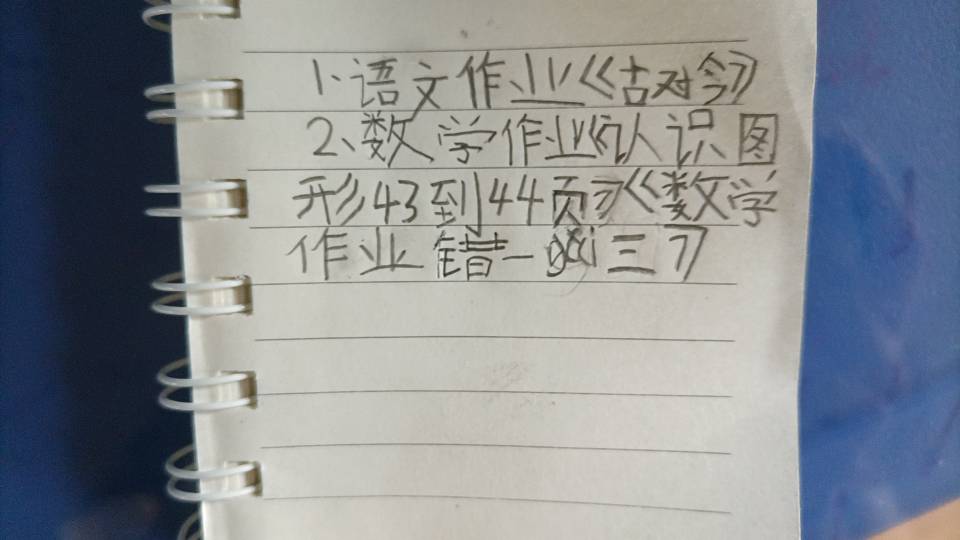 1、语文作业《古对今》
2、数学作业《认识图
形43到44页》《数学
作业错一gai三》